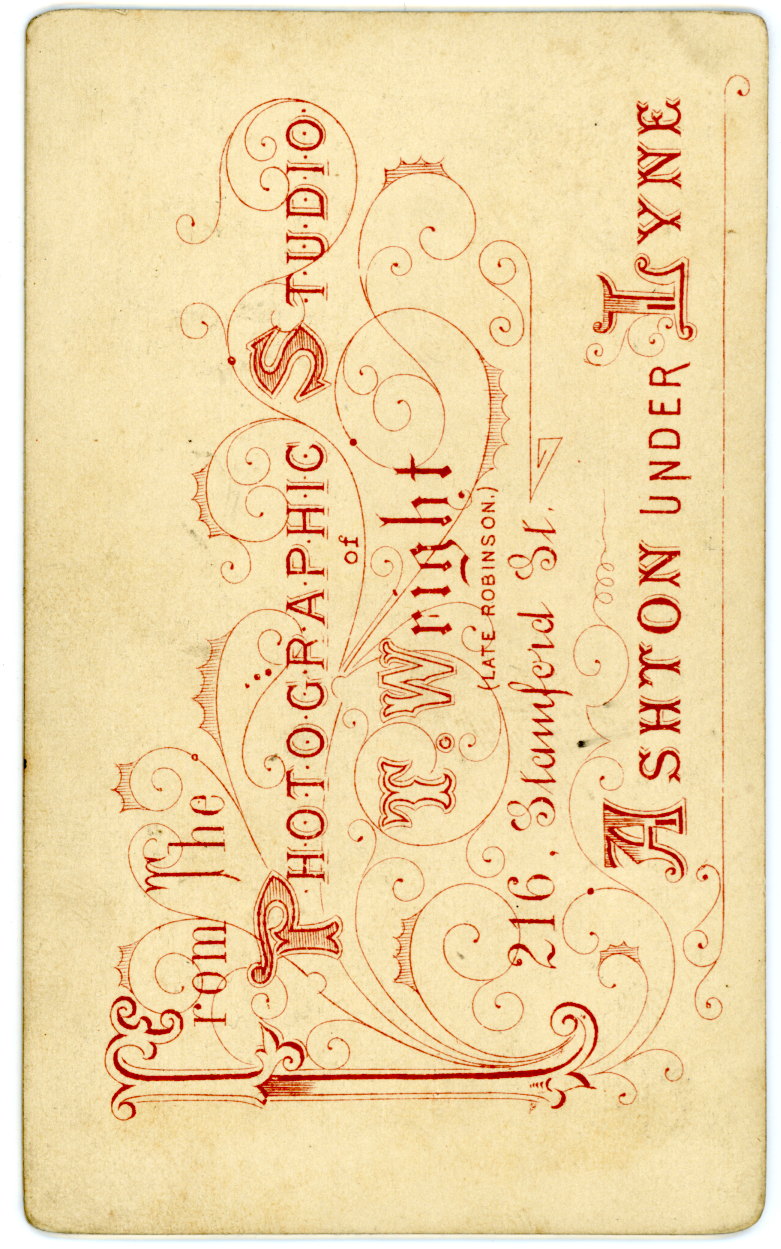 From The
PHOTOGRAPHIC STUDIO
of
T. Wright
(LATE ROBINSON.)
216, Stamford St.
ASHTON UNDER LYNE